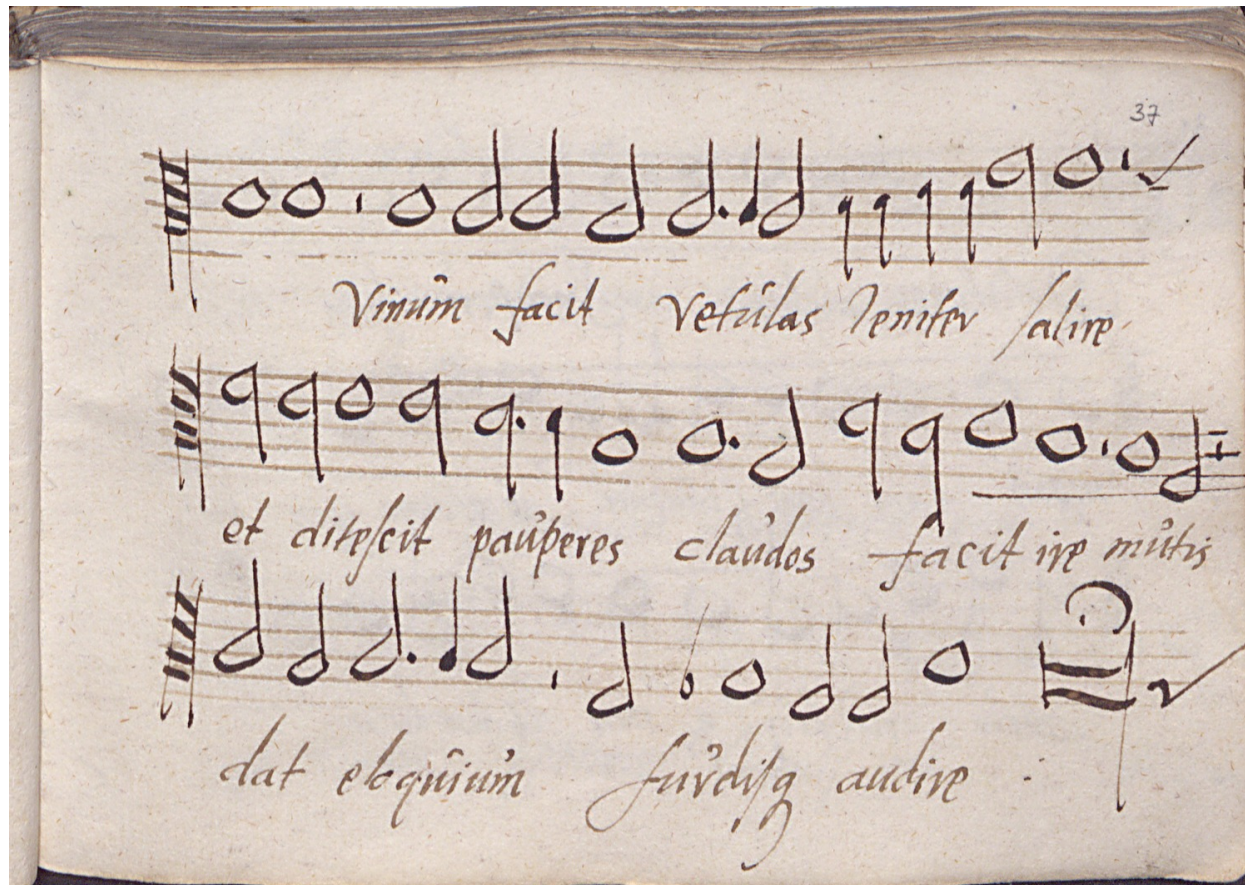 37
Vinum facit vetulas leniter salire
et ditescit pauperes claudos facit ire mutis
dat eloquium surdisq audire